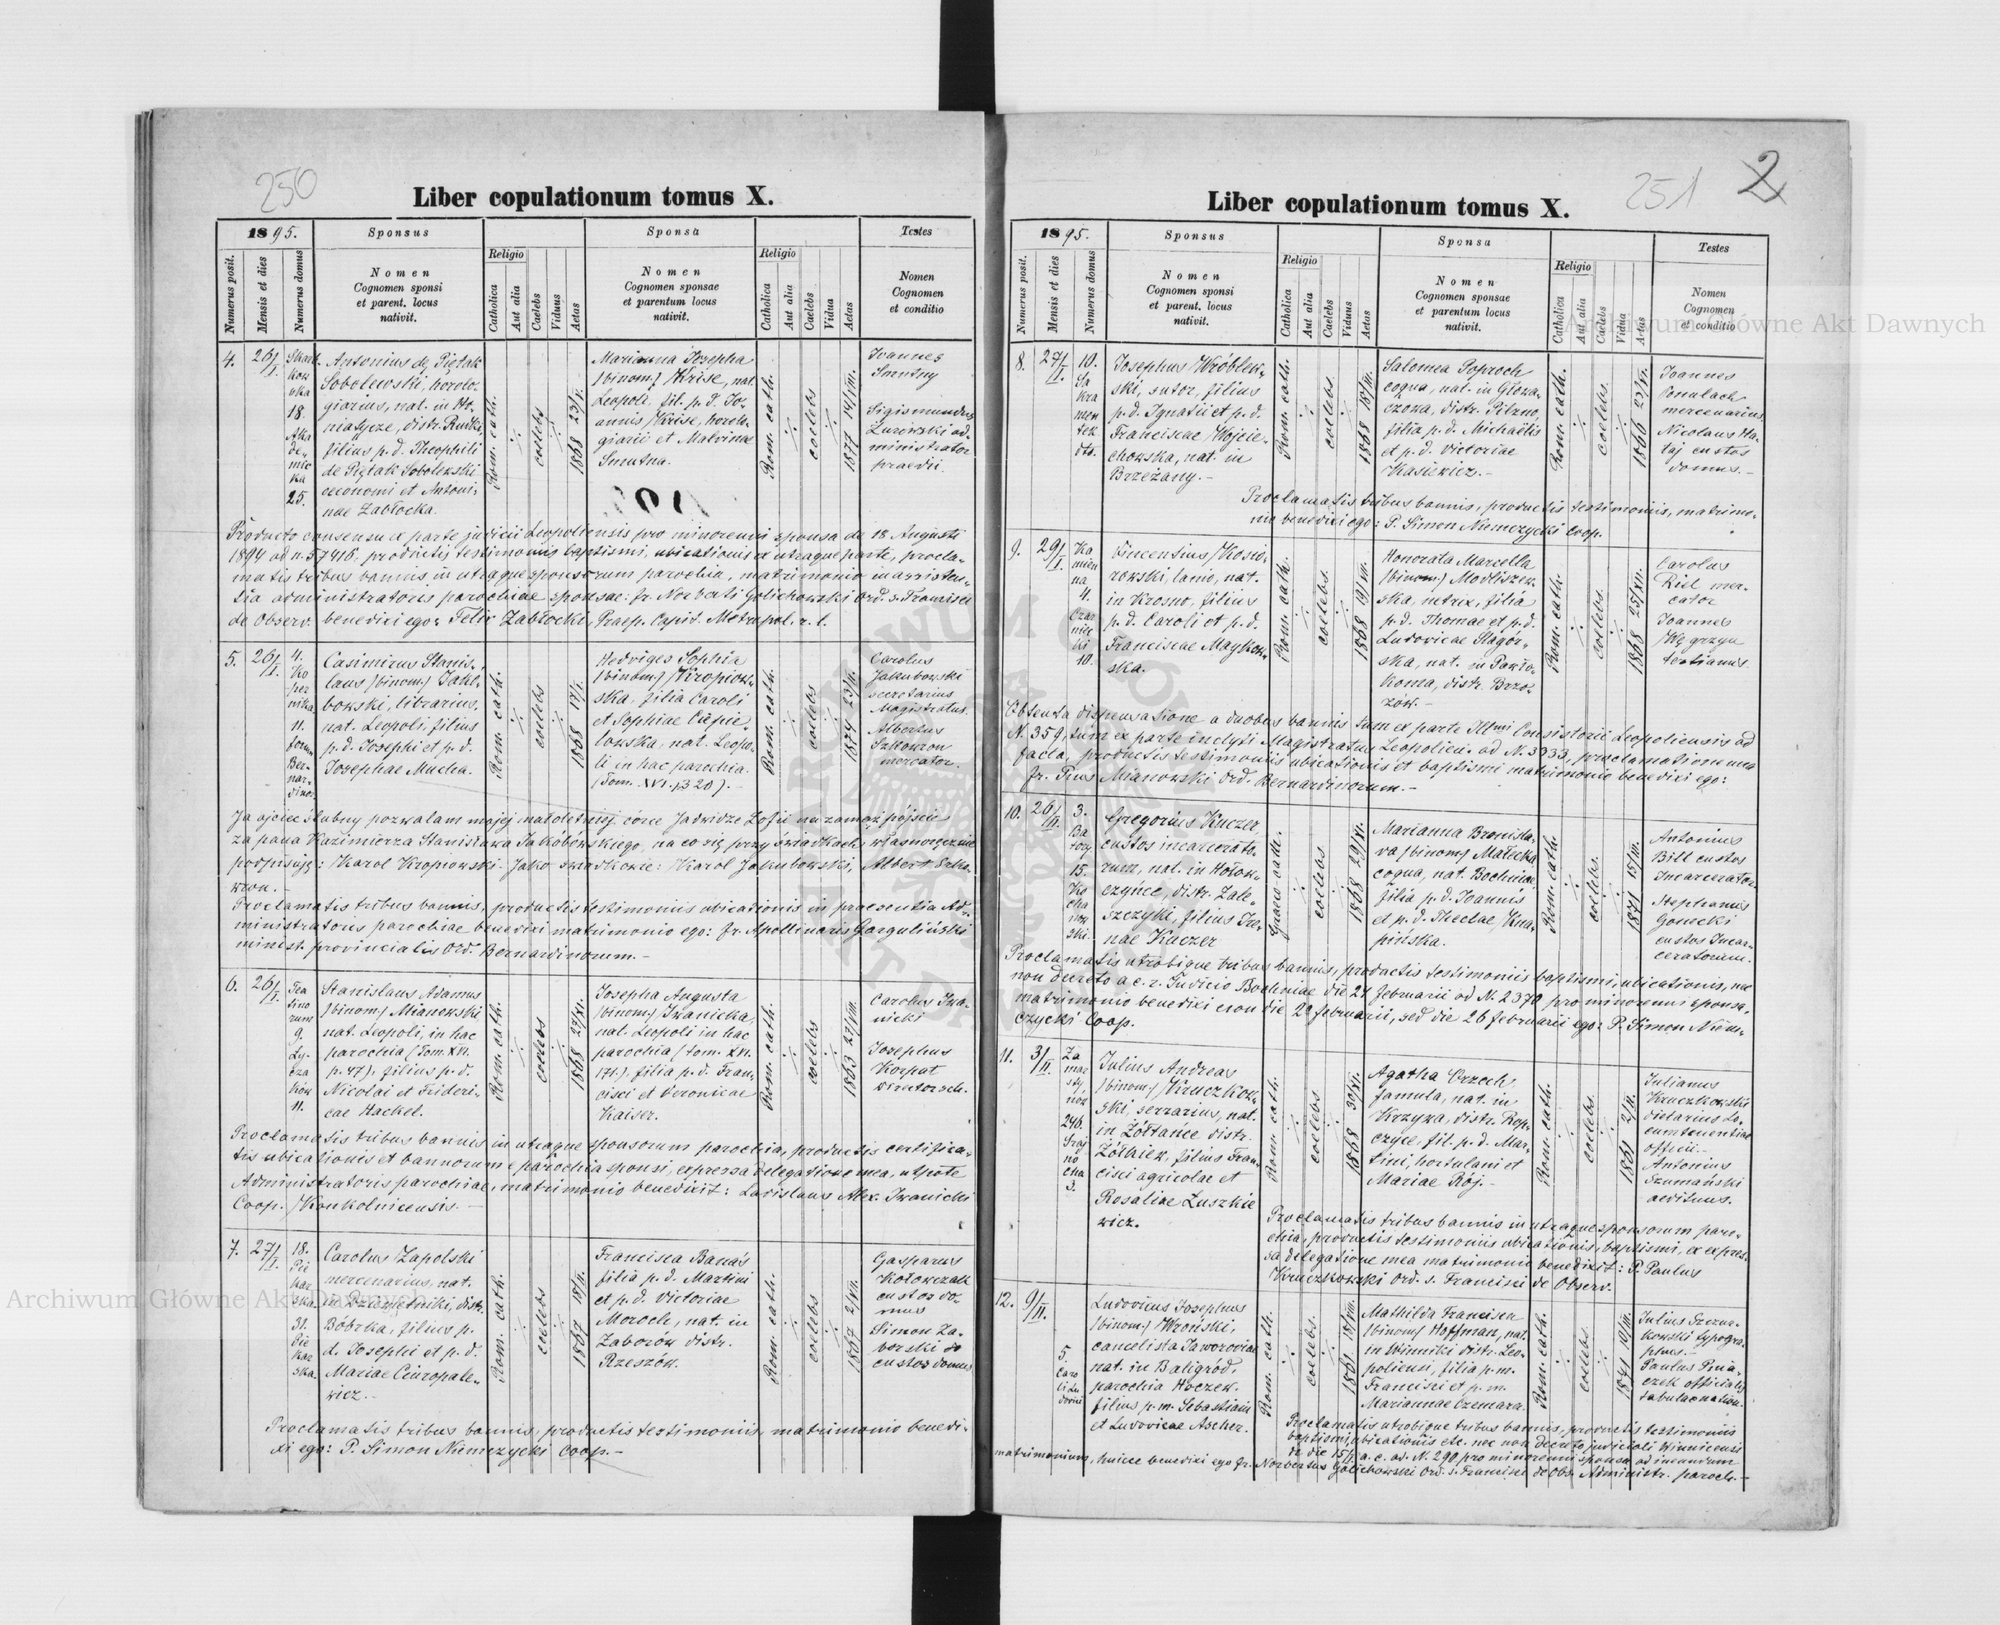 250
Liber copulationum tomus X.
1895.
Sponsus
Sponsa
Testes
Numerus posit.
Mensis et dies
Numerus domus
Nomen
Cognomen sponsi
et parent. locus
nativit.
Religio
Catholica
Aut alia
Caelebs
Viduus
Aetas
Nomen
Cognomen sponsae
et parentum locus
nativit.
Religio
Catholica
Aut alia
Caelebs
Vidua
Aetas
Nomen
Cognomen
et conditio
4.
26/I.
18.
Aka
de-
mic
ka
25.
Antonius de Piętak
Sobolewski, horolo-
giarius, nat. in Ho-
niatycze, distr. Rudki
filius p. d. Theophili
de Piętak Sobolewski
oeconomi et Antoni-
nae Zabłocka.
Rom. cath.
coelebs
1868 23/V.
Marianna Josepha
(binom.) Krise, nat.
Leopoli. fil. p. d. Jo-
annis Krise, horolo-
giarii et Malvinae
Smutna.
Rom. cath.
coelebs
1877 14/III.
Ioannes
Smutny
Sigismundus
Żurowski ad-
ministrator
praedii.
Producto consensu ex parte judicii Leopoliensis pro minorenni sponsa de 18 Augusti
1894 ad n. 57416, productis testimoniis baptismi, ubicationis ex utraque parte, procla-
matis tribus bannis, in utraque sponsorum parochia, matrimonio in assisten-
tia administratoris parochiae sponsae: fr. Norberti Golichowski Ord. s. Francisci
de Observ. benedixi ego: Felix Zabłocki, Praep. Capit. Metropol. r. l.
5.
26/I.
4.
Ko
per
nika
11.
forum
Ber-
nar-
dinor.
Casimirus Stanis-
laus (binom.) Jakó-
bowski, librarius,
nat. Leopoli, filius
p. d. Josephi et p. d.
Josephae Mucha.
Rom. cath.
coelebs
1868
Hedviges Sophia
(binom.) Kropiow-
ska, filia Caroli
et Sophiae Ciepie-
lowska, nat. Leopo-
li in hac parochia.
(Tom. XVI. p. 320). -
Rom. cath.
coelebs
1874
Carolus
Jakubowski
secretarius
Magistratus.
Albertus
Szkowron
mercator.
Ja ojciec ślubny pozwalam mojej małoletniej córce Jadwidze Zofii na zamąż pójście
za pana Kazimierza Stanisława Jakóbowskiego, na co się przy świadkach własnoręcznie
podpisuję: Karol Kropiowski. Jako świadkowie: Karol Jakubowski, Albert Szko-
wron. -
Proclamatis tribus bannis, productis testimoniis ubicationis in praesentia Ad-
ministratoris parochiae benedixi matrimonio ego: fr. Apollinaris Gorguliński
minist. provincialis Ord. Bernardinorum. -
6.
26/I.
Tea
tino
rum
9.
Ly-
cza
kow
11.
Stanislaus Adamus
(binom.) Mianowski
nat. Leopoli, in hac
parochia (Tom. XVI.
p. 47), filius p. d.
Nicolai et Frideri-
cae Hackel.
Rom. cath.
coelebs
1868
Josepha Augusta
(binom.) Iwanicka,
nat. Leopoli in hac
parochia (tom. XVI.
171.) filia p. d. Fran-
cisci et Veronicae
Kaiser.
Rom. cath.
coelebs
1863
Carolus Iwa-
nicki
Josephus
Korpat
Proclamatis tribus bannis in utraque sponsorum parochia, productis certifica-
tis ubicationis et bannorum e parochia sponsi, expressa delegatione mea, utpote
Administratoris parochiae, matrimonio benedixit: Ladislaus Alex. Iwanicki
Coop. Konkolnicensis. -
7.
27/I.
18.
Pie
kar
ska.
31.
Pie
kar
ska.
Carolus Zapolski
mercenarius, nat.
in Dziewiętniki, distr.
Bóbrka, filius p.
d. Josephi et p. d.
Mariae Ciuropale-
wicz. -
Rom. cath.
coelebs
1867
Francisca Banaś
filia p. d. Martini
et p. d. Victoriae
Moroch, nat. in
Zaborów distr.
Rzeszów.
Rom. cath.
coelebs
1867
Gasparus
Kołowczak
custos do-
mus
Simon Za-
borski
custos domus
Proclamatis tribus bannis, productis testimoniis, matrimonio benedi-
xi ego: P. Simon Niemczycki Coop. -
251
2
Liber copulationum tomus X.
1895.
Sponsus
Sponsa
Testes
Numerus posit.
Mensis et dies
Numerus domus
Nomen
Cognomen sponsi
et parent. locus
nativit.
Religio
Catholica
Aut alia
Caelebs
Viduus
Aetas
Nomen
Cognomen sponsae
et parentum locus
nativit.
Religio
Catholica
Aut alia
Caelebs
Vidua
Aetas
Nomen
Cognomen
et conditio
8.
27/I.
10.
Sa
kra
men
tek
Josephus Wróblew-
ski, sutor, filius
p. d. Ignatii et p. d.
Franciscae Wojcie-
chowska, nat. in
Brzeżany. -
Rom. cath.
coelebs
1868 18/III.
Salomea Poproch
coqua, nat. in Głowa-
czowa, distr. Pilzno,
filia p. d. Michaëlis
et p. d. Victoriae
Kasiewicz. -
Rom. cath.
coelebs.
1866
Ioannes
mercenarius.
Nicolaus Ha-
taj custos
domus. -
Proclamatis tribus bannis, productis testimoniis, matrimo-
nio benedixi ego: P. Simon Niemczycki Coop.
9.
29/I.
Ka
mien
na
4.
Czar
niec
ki
10.
Vincentius Kosio-
rowski, lanio, nat.
in Krosno, filius
p. d. Caroli et p. d.
Franciscae Maykow-
ska.
Rom. cath.
coelebs
1868 19/III.
Honorata Marcella
(binom.) Modliszew-
ska, netrix, filia
p. d. Thomae et p. d.
Ludovicae Stagór-
ska, nat. in Pawło-
koma, distr. Brzo-
zów. -
Rom. cath.
coelebs.
1868 25/XII.
Carolus
Riel mer-
cator
Joannes
Węgrzyn
tertianus.
Obtenta dispensatione a duobus bannis tum ex parte Illmi Consistorii Leopoliensis ad
N. 359, tum ex parte inclyti Magistratus Leopolien. ad N. 3033, proclamatione una
facta, productis testimoniis ubicationis et baptismi matrimonio benedixi ego:
fr. Pius Mianowski Ord. Bernardinorum. -
10.
26/II.
3.
Ba
tory
15.
Ko
cha
now
ski.
Gregorius Kuczer,
custos incarcerato-
rum, nat. in Hołow-
czyńce, distr. Zale-
szczyki, filius Ire-
nae Kuczer
Graeco cath.
coelebs
1868 29/XI.
Marianna Bronisla-
va (binom.) Małecka
coqua, nat. Bochniae,
filia p. d. Joannis
et p. d. Theclae Kna-
pińska.
Rom. cath.
coelebs.
1871 15/III.
Antonius
Bill custos
Incarcerator.
Stephanus
Gonecki
custos Incar-
ceratorum.
Proclamatis utrobique tribus bannis, productis testimoniis baptismi, ubicationis, nec
non decreto a c. r. Judicio Bochniae die 24 februarii ad N. 2370 pro minorenni sponsa,
matrimonio benedixi die 22 februarii, sed die 26 februarii ego: P. Simon Niem-
czycki Coop.
11.
3/II.
Za
mar
sty
now
246.
3.
Julius Andreas
(binom.) Kruczkow-
ski, serrarius, nat.
in Żółtańce distr.
Żółkiew, filius Fran-
cisci agricolae et
Rosaliae Łuszkie
wicz.
Rom. cath.
coelebs.
1868 30/XI.
Agatha Orzech,
famula, nat. in
Krzywa, distr. Rop-
czyce, fil. p. d. Mar-
tini, hortulani et
Mariae Rój. -
Rom. cath.
coelebs.
1861 2/II.
Julianus
Kruczkowski
officii. -
Antonius
Szumański
aedituus.
Proclamatis tribus bannis in utraque sponsorum paro-
chia, productis testimoniis ubicationis, baptismi, ex expres-
sa delegatione mea matrimonio benedixit: P. Paulus
Kruczkowski Ord. s. Francisci de Observ.
12.
9/II.
5.
Caro
li Lu
dovici
Ludovicus Josephus
(binom.) Wroński,
cancelista Jaworoviae
nat. in Baligród,
parochia Hoczew.
filius p. m. Sebastiani
et Ludovicae Ascher.
Rom. cath.
coelebs.
1861 18/VIII.
Mathilda Francisca
(binom.) Hoffman, nat.
in Winniki distr. Leo-
poliensi, filia p. m.
Francisci et p. m.
Mariannae Czemara.
Rom. cath.
coelebs.
Julius Szczur-
kowski typogra-
phus. -
Paulus Pnia-
czek officialis
tabulae nation.
Proclamatis utrobique tribus bannis, productis testimoniis
baptismi, ubicationis etc. nec non decreto judiciali Winnicensi
de die 15/I a. c. ad. N. 290 pro minorenni sponsa ad ineundum
matrimonium, huicce benedixi ego fr. Norbertus Golichowski Ord. s. Francisci de Obs. Administr. paroch. -
Archiwum Główne Akt Dawnych
Archiwum Główne Akt Dawnych